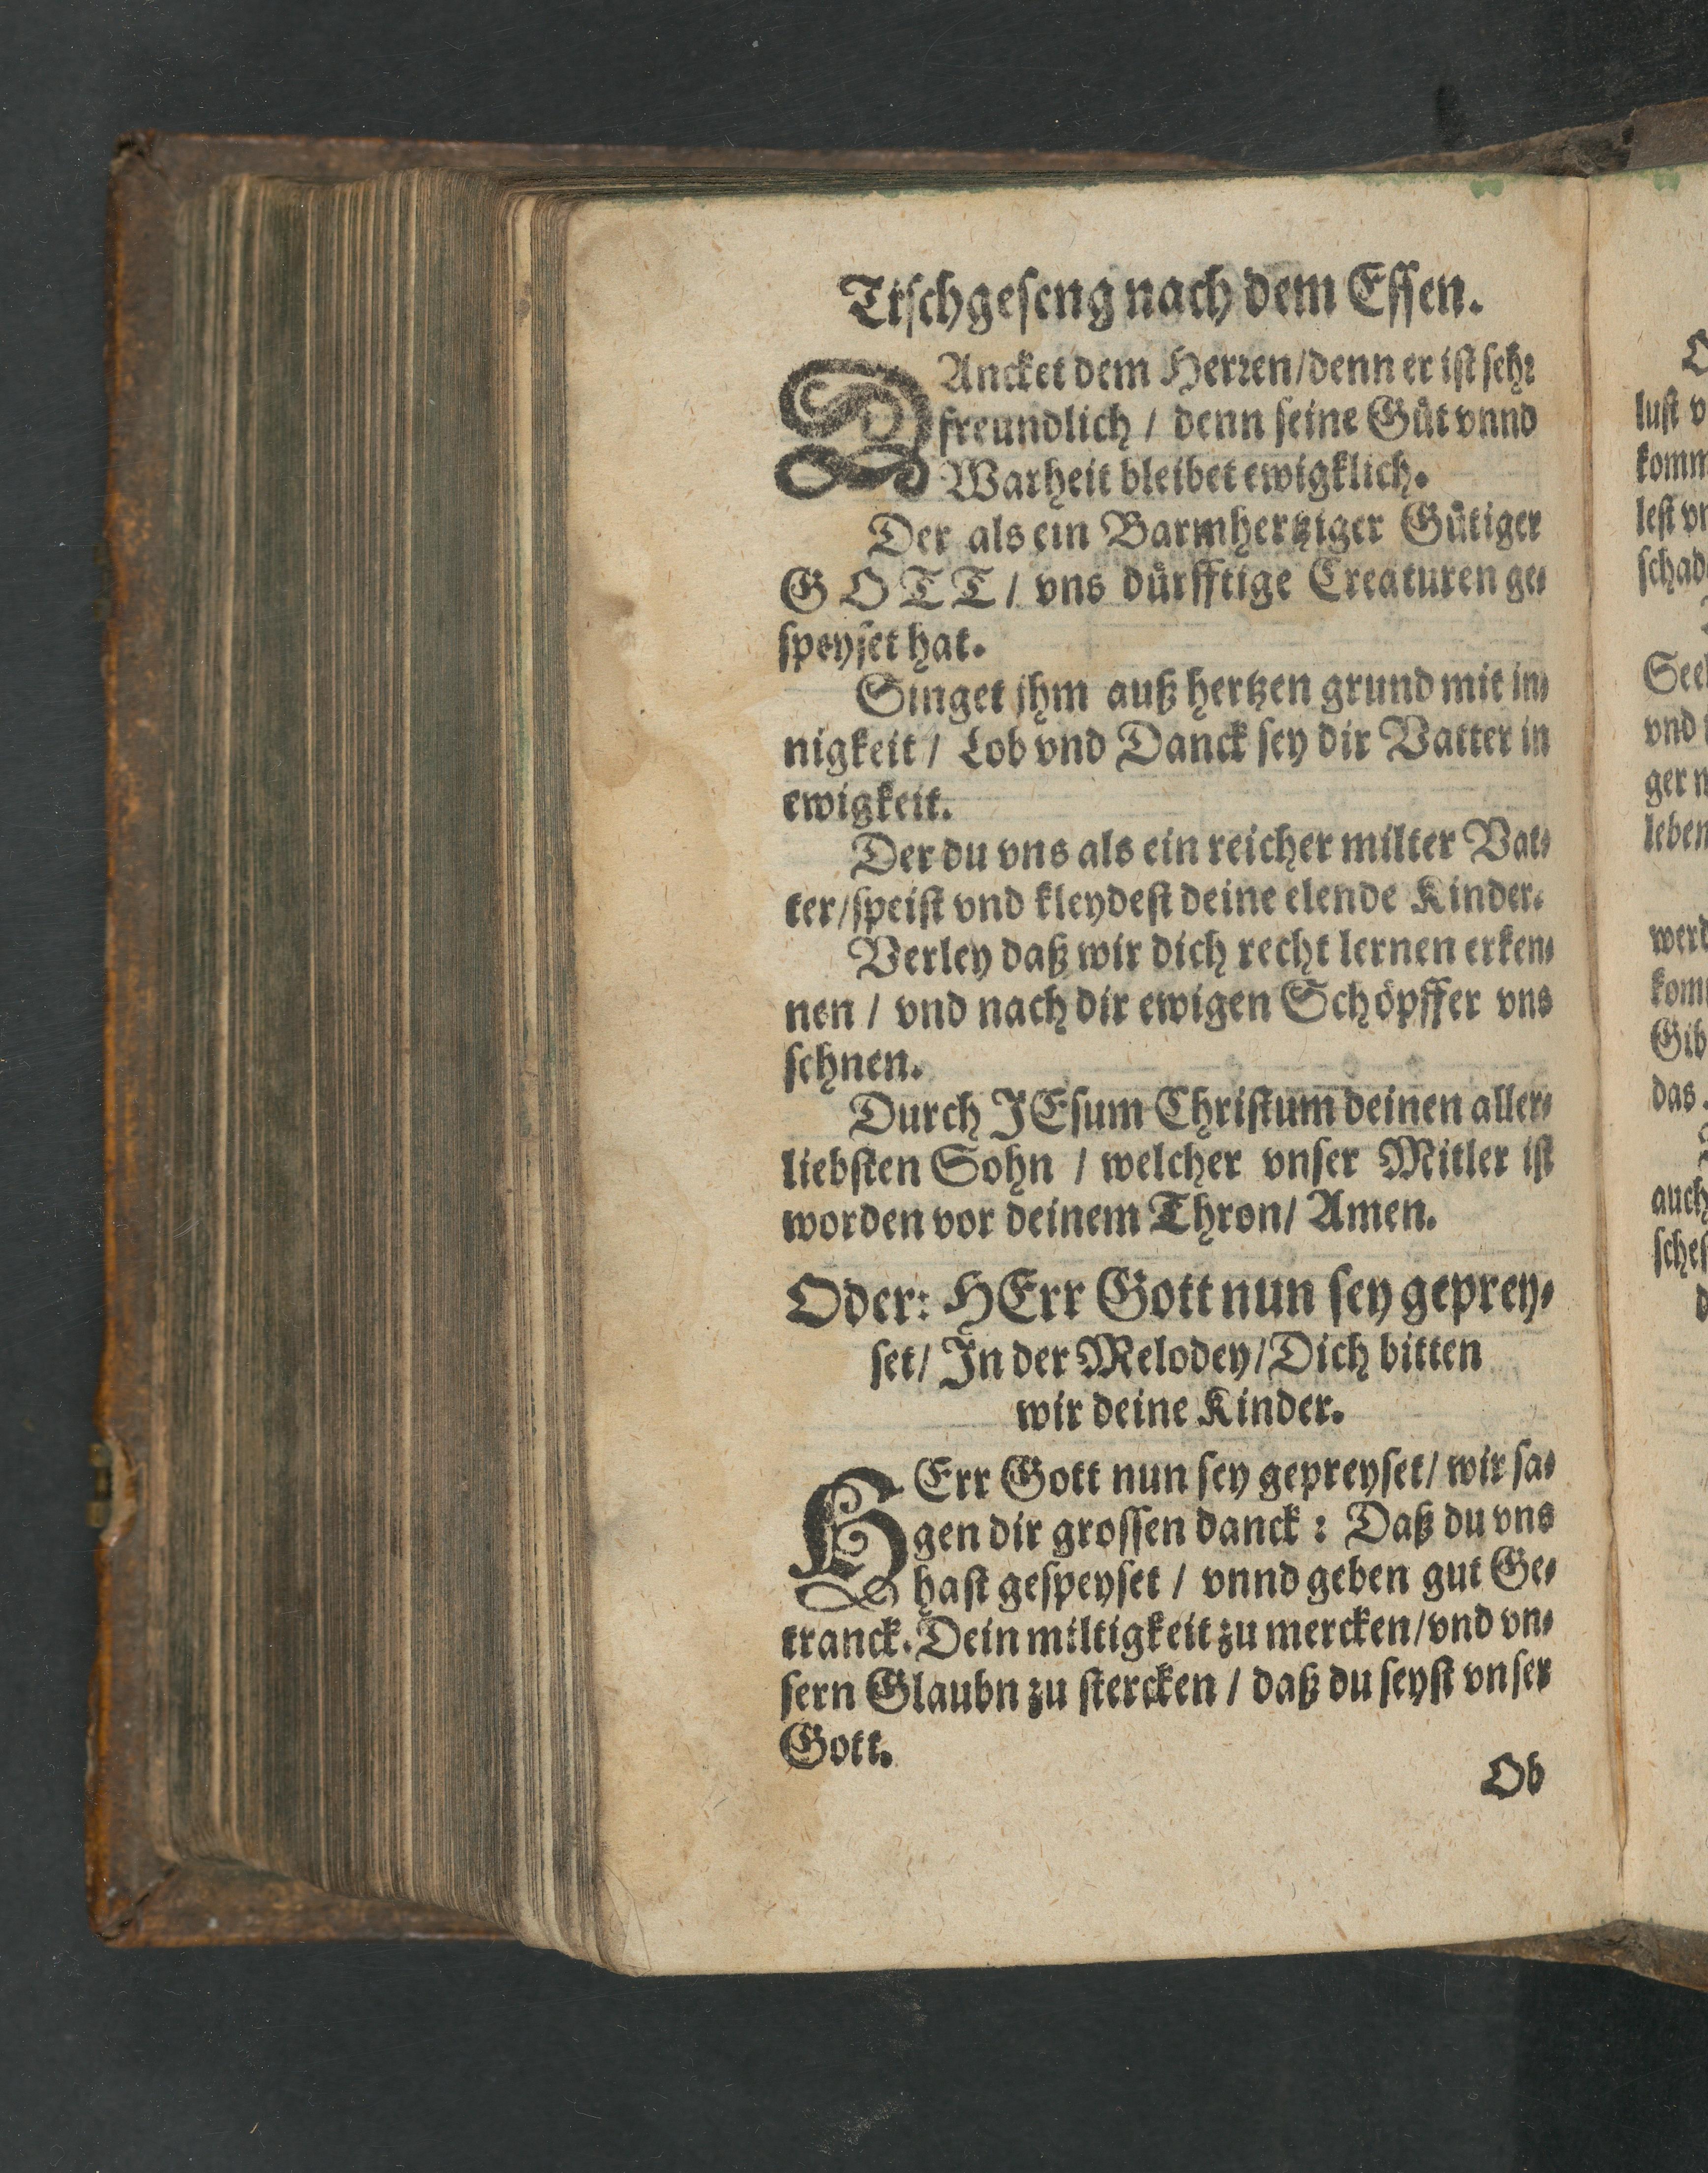 Tischgeseng nach dem Essen.
DAncket dem Herren/denn er ist sehr
freundlich / denn seine Güt vnnd
Warheit bleibet ewigklich.
Der als ein Barmhertziger Gütiger
GOTT/ vns dürfftige Creaturen ge-
speyset hat.
Singet jhm auß hertzen grund mit in-
nigkeit / Lob vnd Danck sey dir Vatter in
ewigkeit.
Der du vns als ein reicher milter Vat-
ter/speist vnd kleydest deine elende Kinder.
Verley daß wir dich recht lernen erken-
nen / vnd nach dir ewigen Schöpffer vns
sehnen.
Durch JEsum Christum deinen aller-
liebsten Sohn / welcher vnser Mitler ist
worden vor deinem Thron/ Amen.
Oder: HErr Gott nun sey geprey-
set/ In der Melodey/Dich bitten
wir deine Kinder.
HErr Gott nun sey gepreyset/ wir sa-
gen dir grossen danck : Daß du vns
hast gespeyset / vnnd geben gut Ge-
tranck. Dein miltigkeit zu mercken/vnd vn-
sern Glaubn zu stercken / daß du seyst vnser
Gott.
Ob
lust
komm
lest
schad
See
vnd
ger
leben
werd
kom
Gib
das
auch